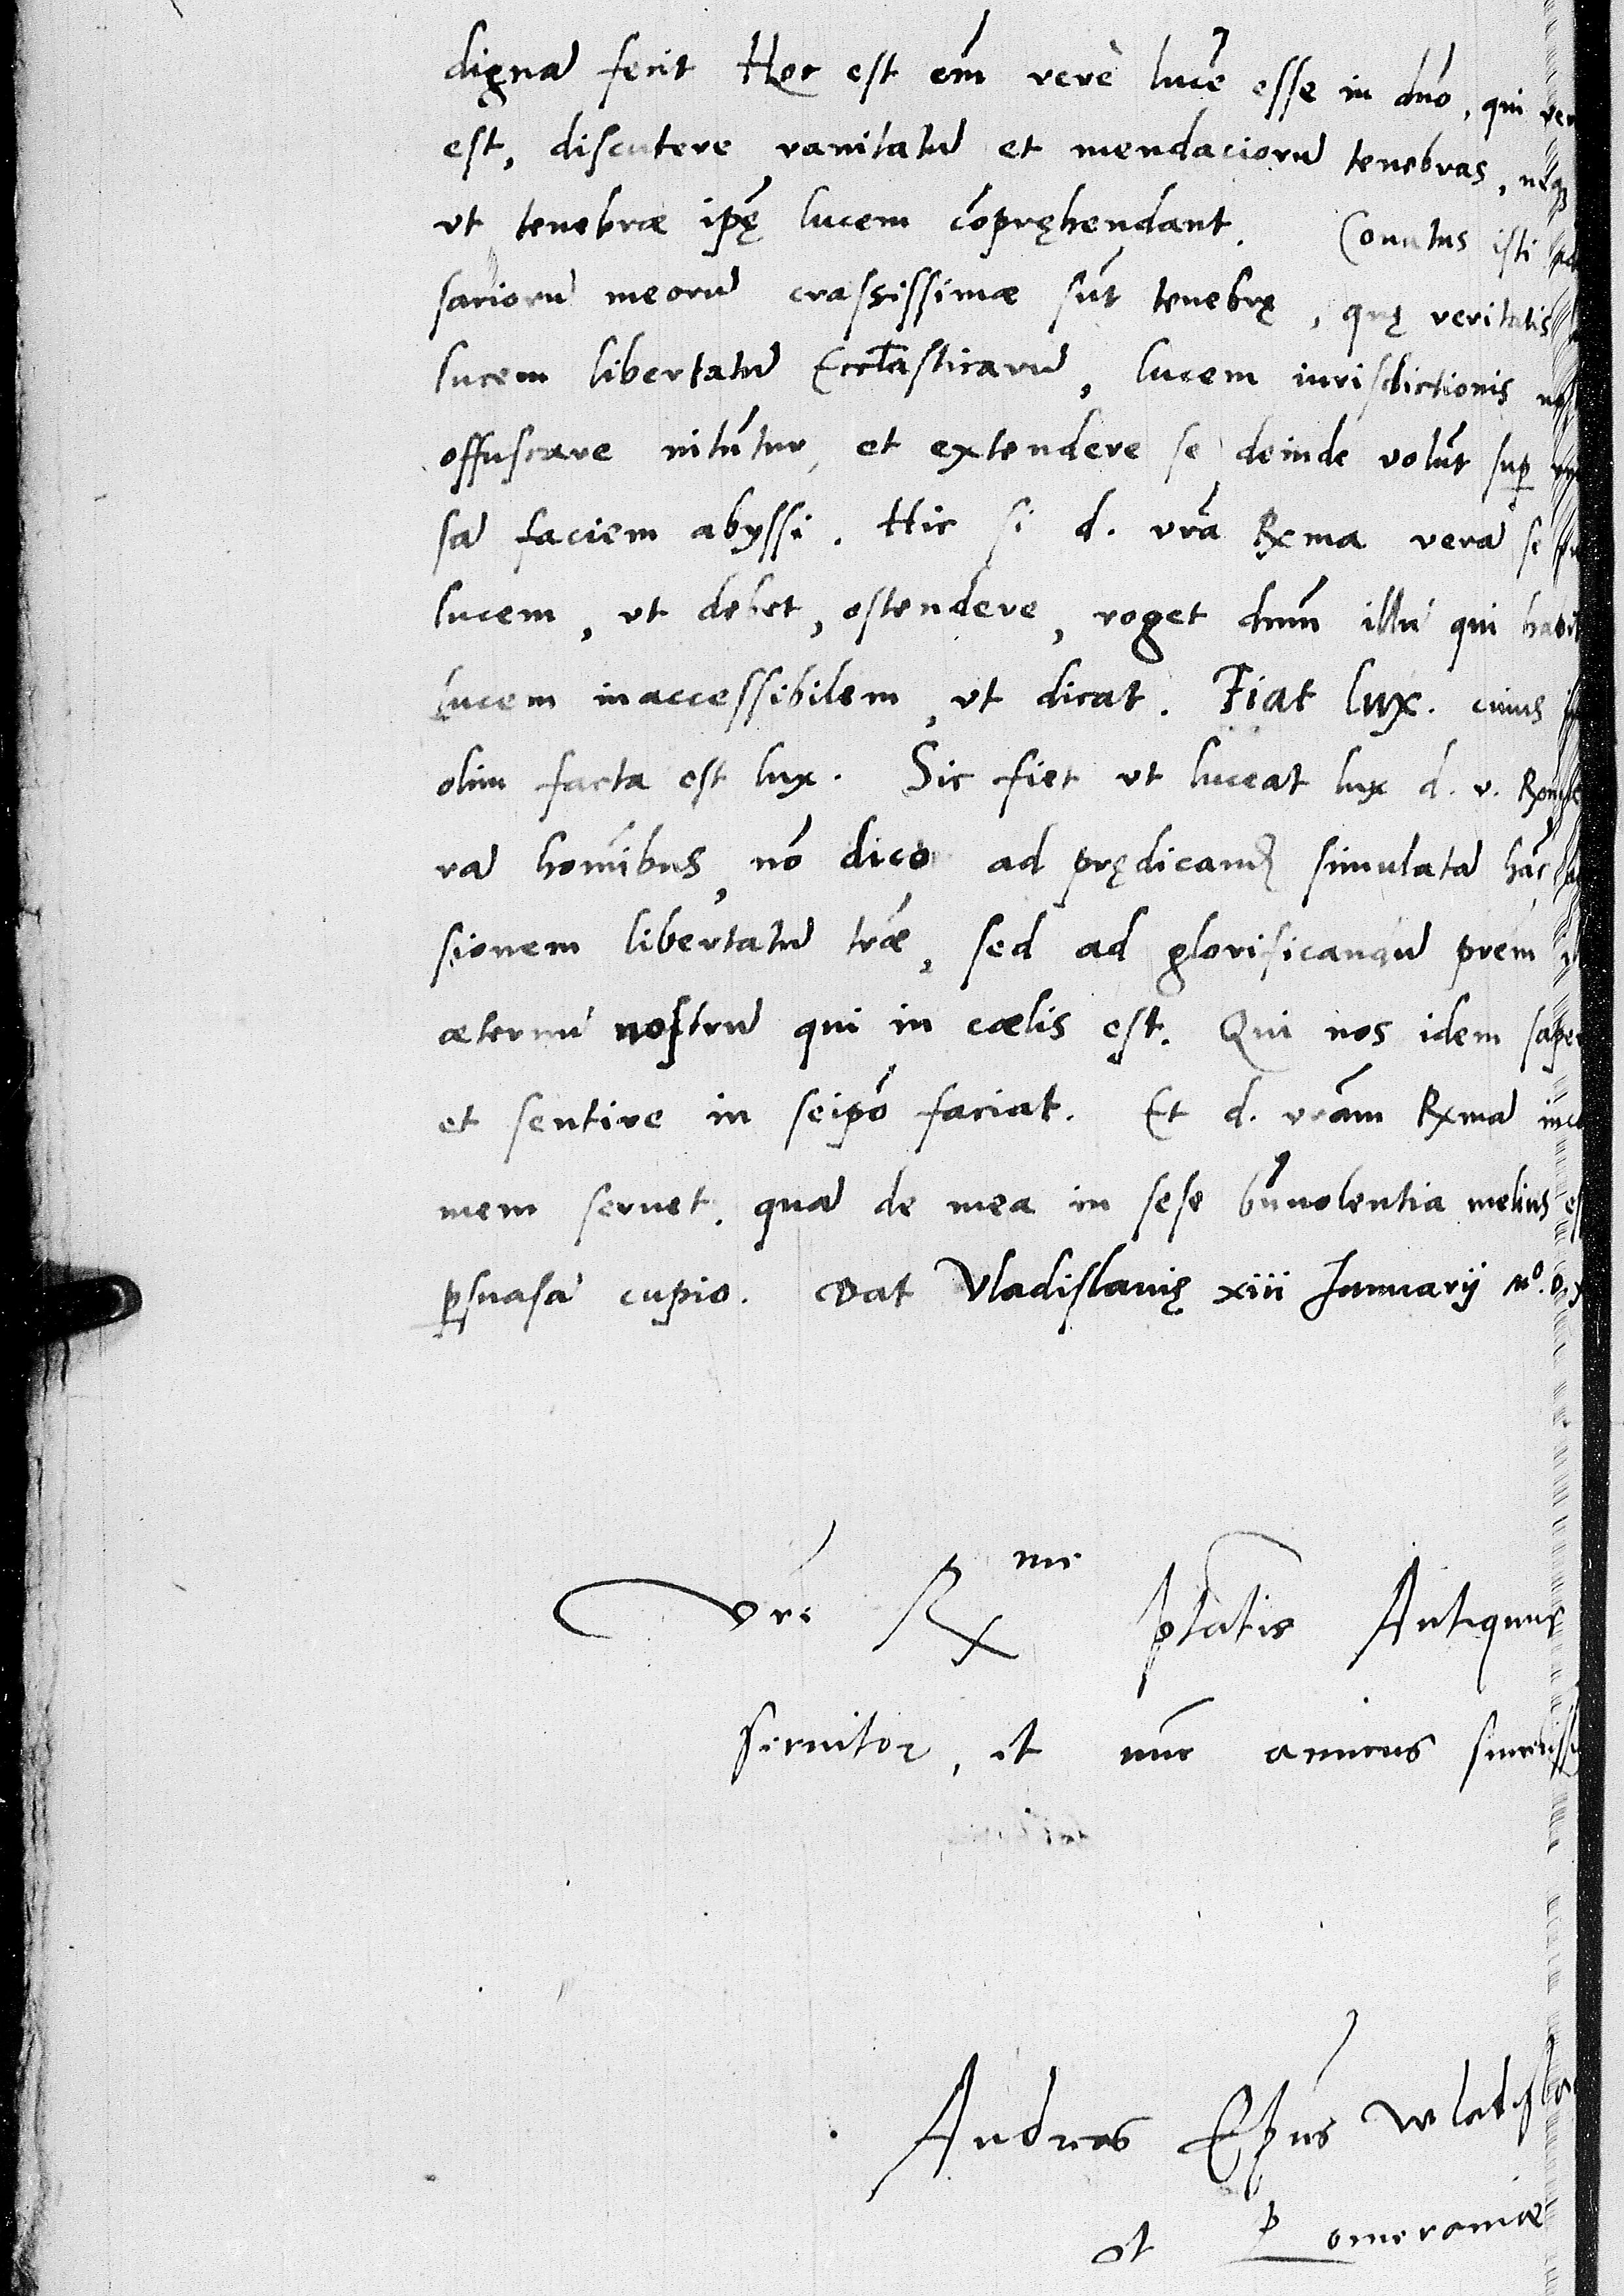 dignā ferit Hoc est em̄ verè lucē esse in dn̄o, qui
est, discutere vanitatū et mendaciorū tenebras,
vt tenebræ ipę lucem cōpręhendant. Conatus isti
sariorū meorū crassissimæ sūt tenebrę, quę veritatis
lucem libertatū Eccl̄asticarū, lucem iurisdictionis
offuscare nitūtur, et extendere se deinde volūt sup
sā faciem abyssi. Hic si d. vr̄a Rxma verā se
lucem, vt debet, ostendere, roget dn̄m illū qui
lucem inaccessibilem, vt dicat. Fiat lux. cuius
olim facta est lux. Sic fiet vt luceat lux d. v.
rā homībus, nō dico ad prędicand simulatā hāc
sionem libertatū tr̄æ, sed ad glorificandū prēm
æternū nostrū qui in cælis est. Qui nos idem
et sentire in seipō faciat. Et d. vrām Rxmā
mem seruet. quā de mea in sese bn̄uolentia melius
psuasā cupio. Dat Vladislauię xiii Januarij
Vrē Rx me ptatis Antiquus
seruitor, et nūc amicus
Andreas Epūs
et Pomeraniæ